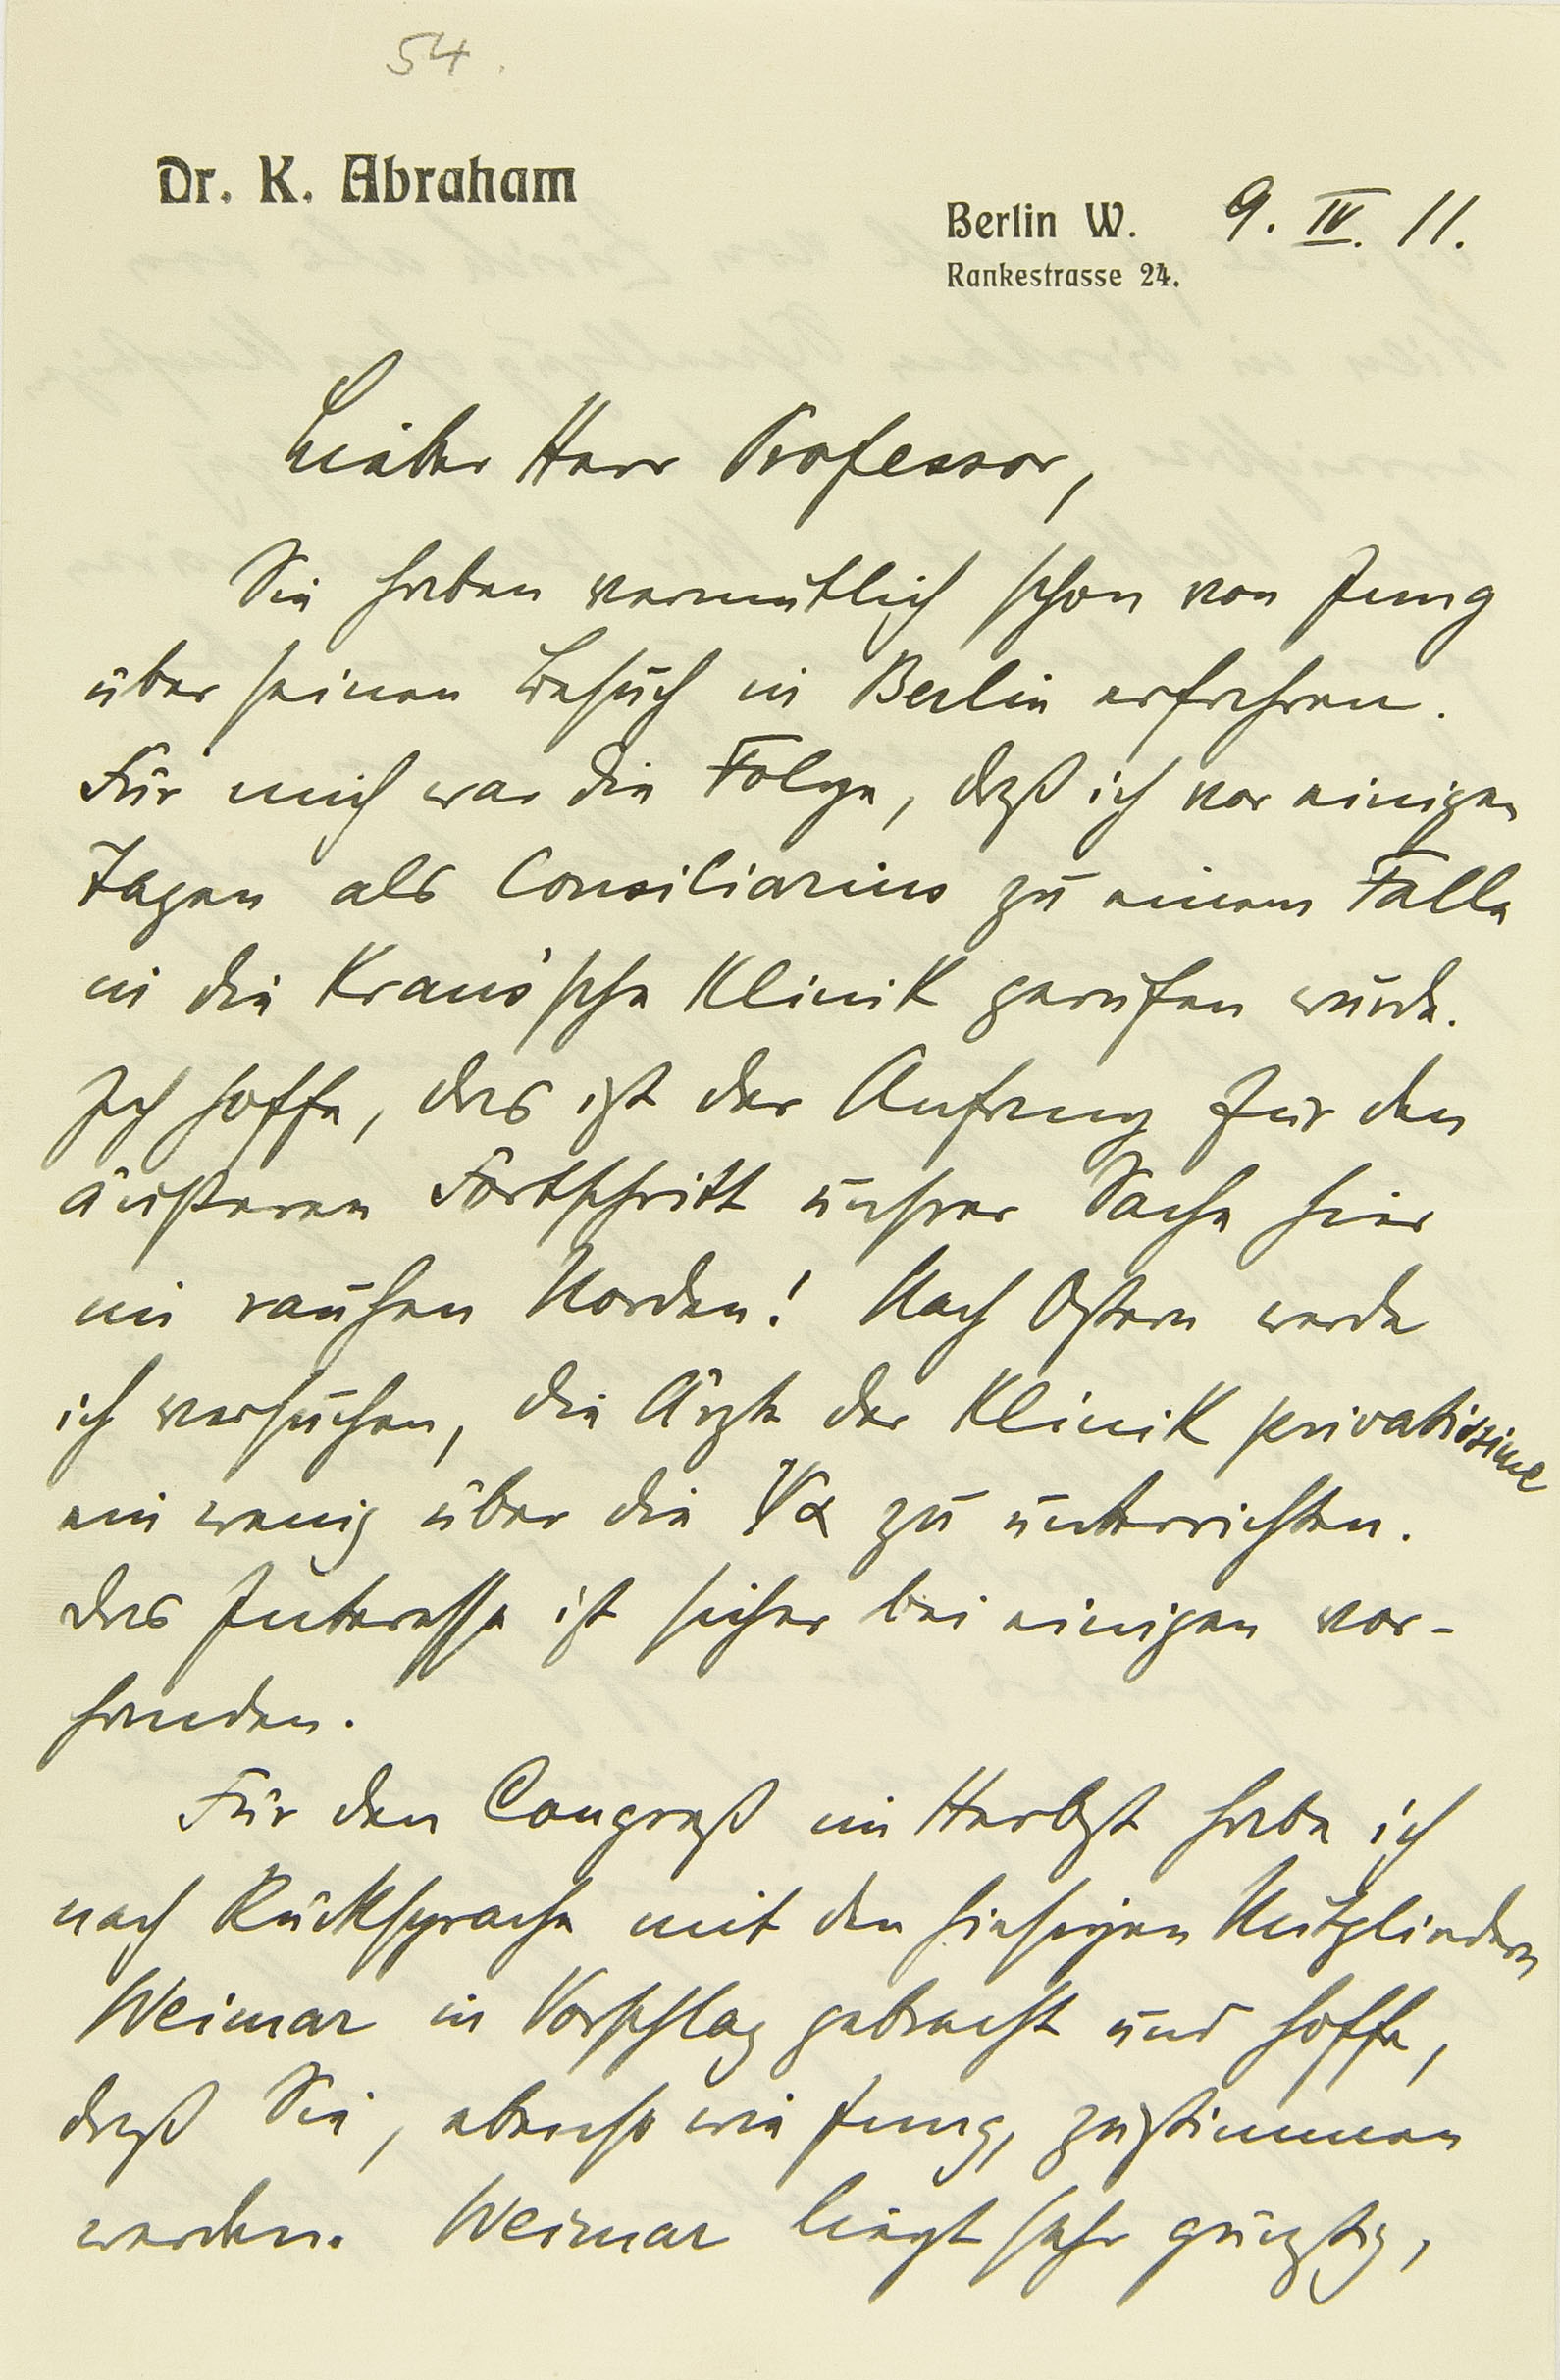 54.
Dr. K. Abraham
Berlin W. 9. IV. 11.
Rankestrasse 24.
Lieber Herr Professor,
Sie haben vermutlich schon von Jung
über seinen Besuch in Berlin erfahren.
Für mich war die Folge, daß ich vor einigen
Tagen als Consiliarius zu einem Falle
in die Kraus'sche Klinik gerufen wurde.
Ich hoffe, das ist der Anfang für den
äußeren Fortschritt unsrer Sache hier
im rauhen Norden! Nach Ostern werde
ich versuchen, die Ärzte der Klinik privatissime
ein wenig über die Ψα zu unterrichten.
Das Interesse ist sicher bei einigen vor-
handen.
Für den Congreß im Herbst habe ich
nach Rücksprache mit den hiesigen Mitgliedern
Weimar in Vorschlag gebracht und hoffe,
daß Sie, ebenso wie Jung, zustimmen
werden. Weimar liegt sehr günstig,